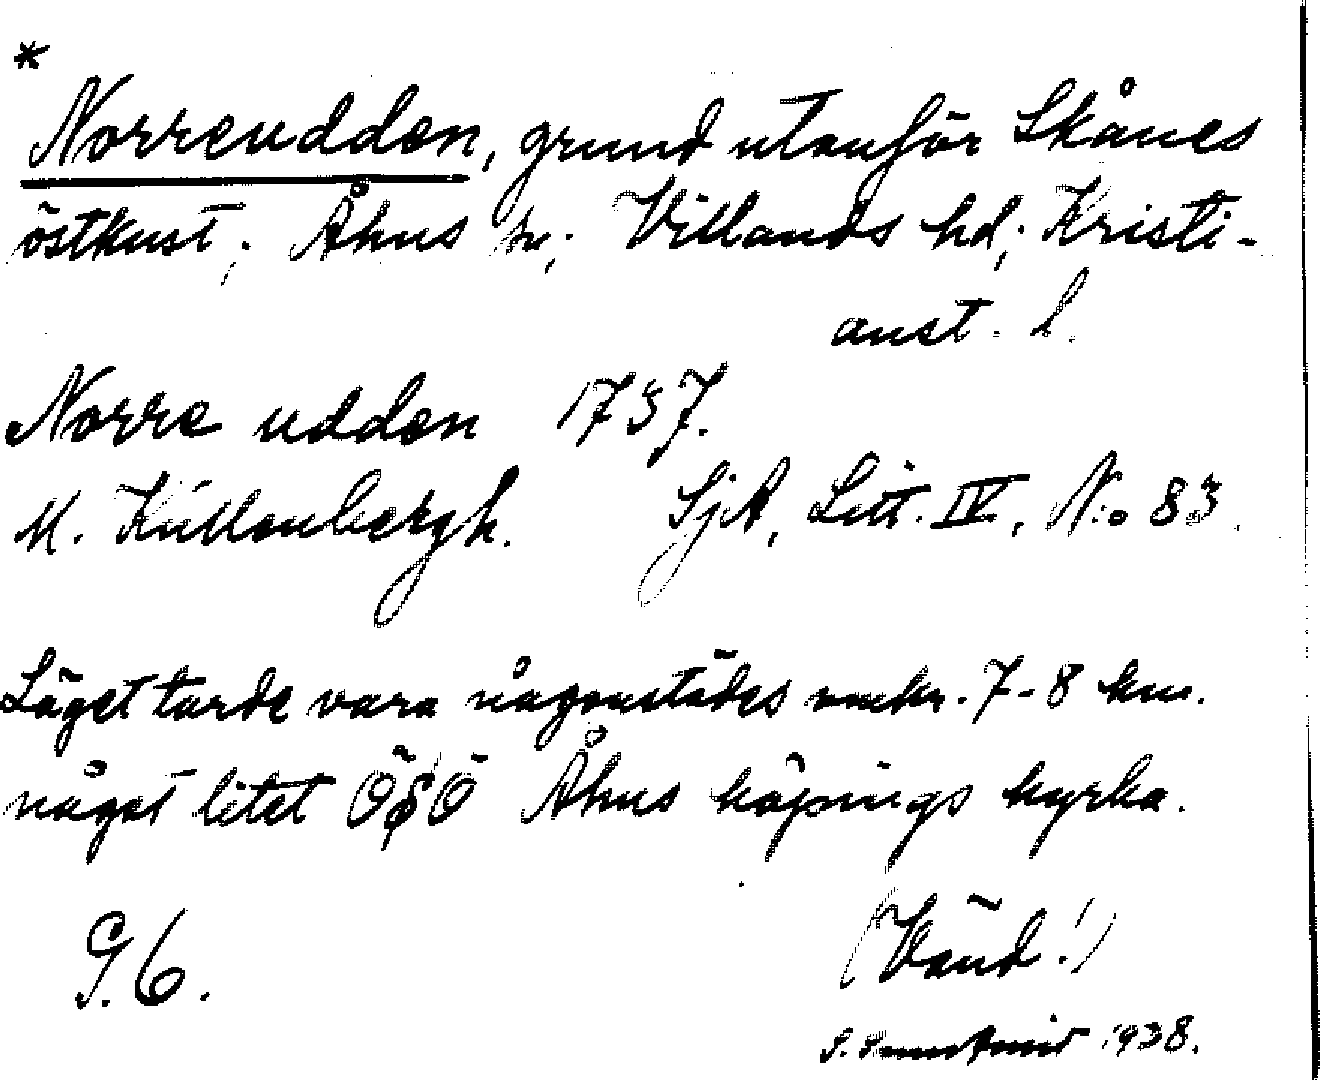 *
Norreudden, grund utanför Skånes
östkust; Åhus sn; Villands hd; Kristi-
anst. l.
Norre udden 1737.
M. Küllenbergh. SjA, Litt. IV, N:o 83.
Läget torde vara någonstädes omkr. 7-8 km.
något litet ÖSÖ Åhus köpings kyrka.
G.6.
(Vänd!)
S. 1938.